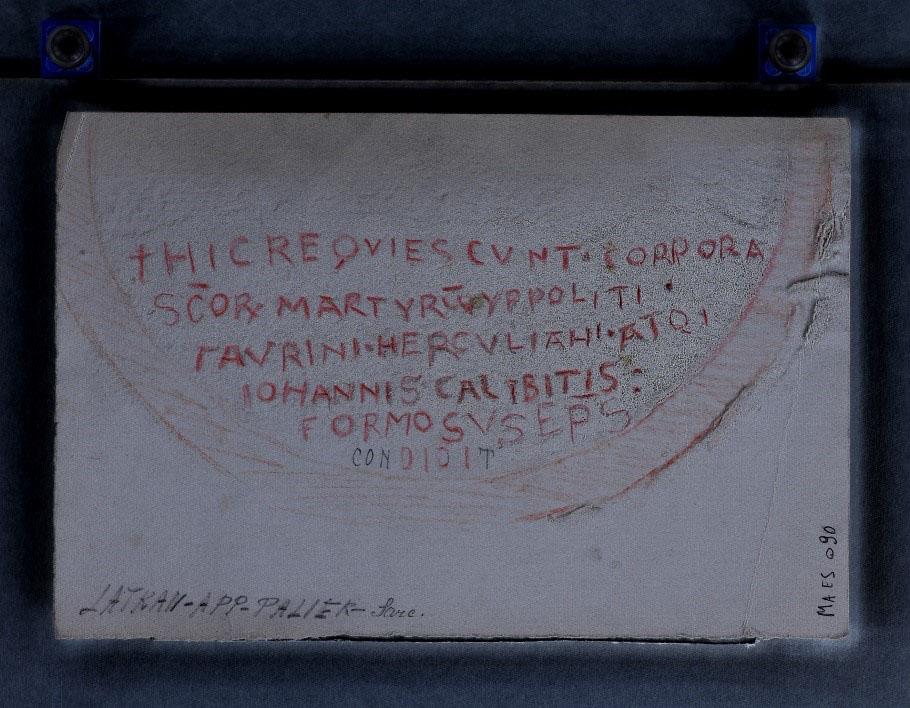 †HICREQVIESCVNT·CORPORA
SC̅OR MARTYRV̅YPPOLITI·
TAVRINI·HERCVLIANI·ATQI
IOHANNIS CALIBITIS:
FORMOSVS EP̅S
CONDIDIT
LATRAN-APP-PALIER-Sarc.
MAES 090